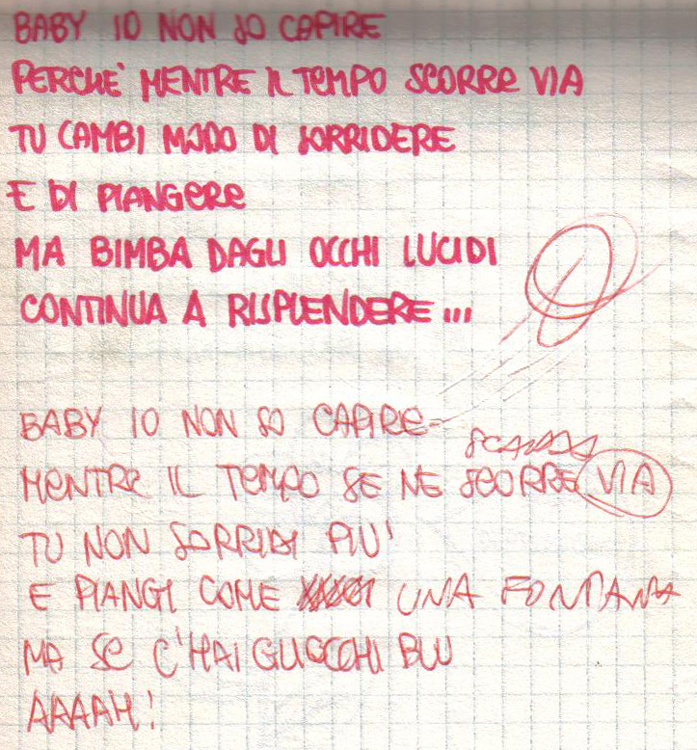 BABY IO NON SO CAPIRE
PERCHE' MENTRE IL TEMPO SCORRE VIA
TU CAMBI MODO DI SORRIDERE
E DI PIANGERE
MA BIMBA DAGLI OCCHI LUCIDI
CONTINUA A RISPLENDERE...
BABY IO NON SO CAPIRE
MENTRE IL TEMPO SE NE SCORRE VIA
TU NON SORRIDI PIU'
E PIANGI COME UNA FONTANA
MA SE C'HAI GLIOCCHI BLU
AAAAH!